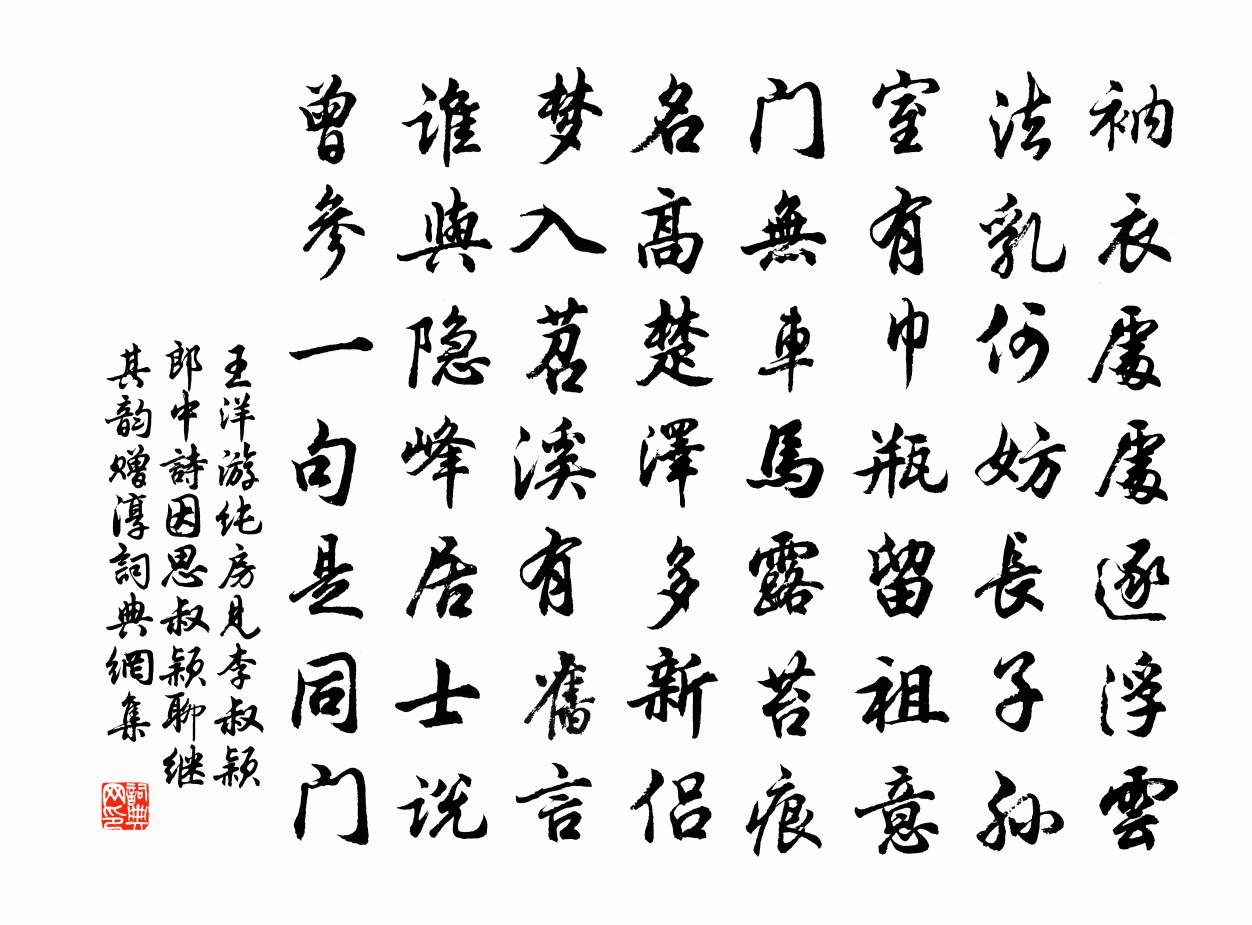 衲衣處處逐浮雲
法乳何妨長子孫
室有巾瓶留祖意
门無車馬露苔痕
名高楚澤多新侣
梦入苕溪有舊言
谁與隐峰居士说
曾參一句是同门
王洋游纯房見李叔颖
郎中詩因思叔颖聊继
其韵赠淳詞典網集
詞典网印